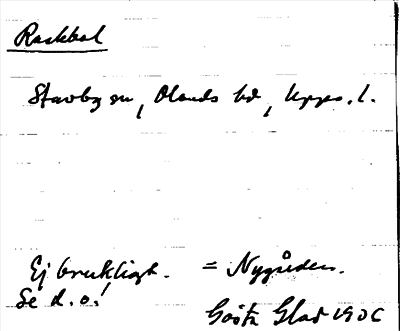 Raskbol
Stavby sn, Olands hd, Upps. l.
Ej brukligt. = Nygården.
Se d. o.!
Gösta Glad 1906